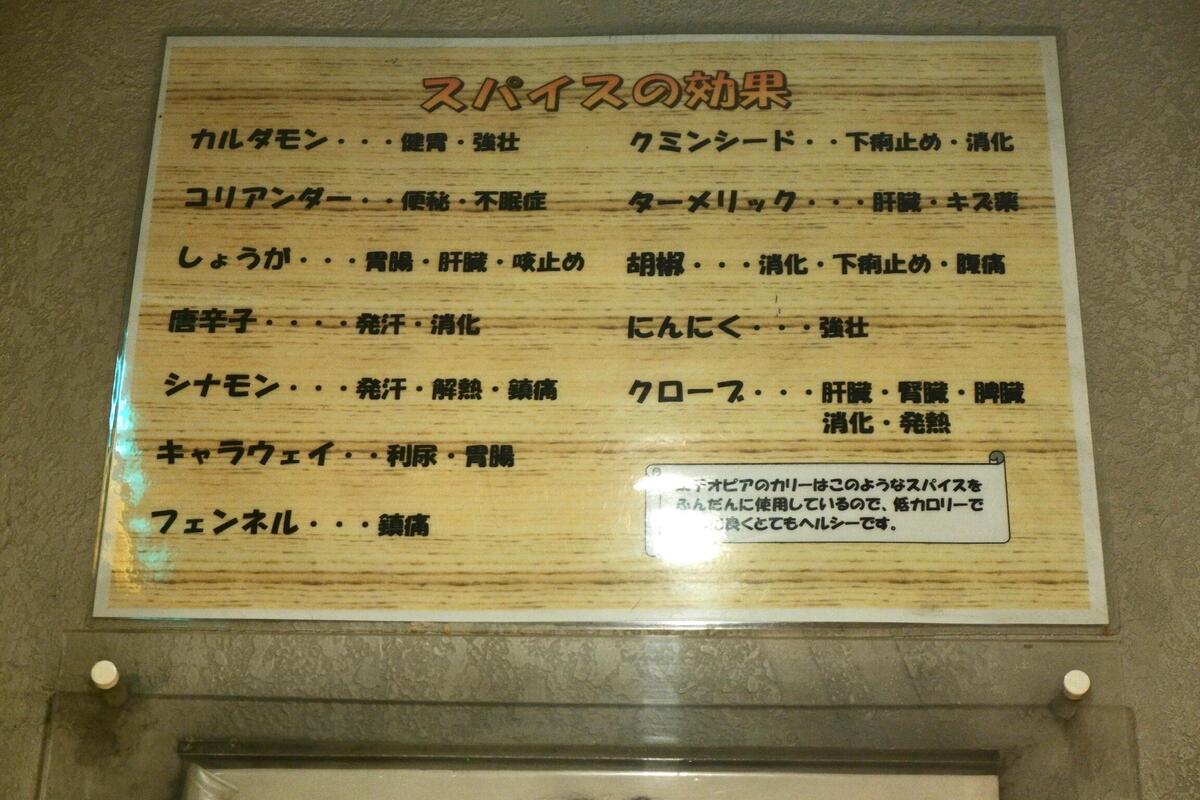 スパイスの効果
カルダモン・・・健胃・強壮
コリアンダー・・便秘・不眠症
しょうが・・・胃腸・肝臓・咳止め
唐辛子・・・・発汗・消化
シナモン・・・発汗・解熱・鎮痛
キャラウェイ・・利尿・胃腸
フェンネル・・・鎮痛
クミンシード・・下痢止め・消化
ターメリック・・・肝臓・キズ薬
胡椒・・・消化・下痢止め・腹痛
にんにく・・・強壮
クローブ・・・肝臓・腎臓・脾臓
消化・発熱
エチオピアのカリーはこのようなスパイスを
ふんだんに使用しているので、低カロリーで
良くとてもヘルシーです。